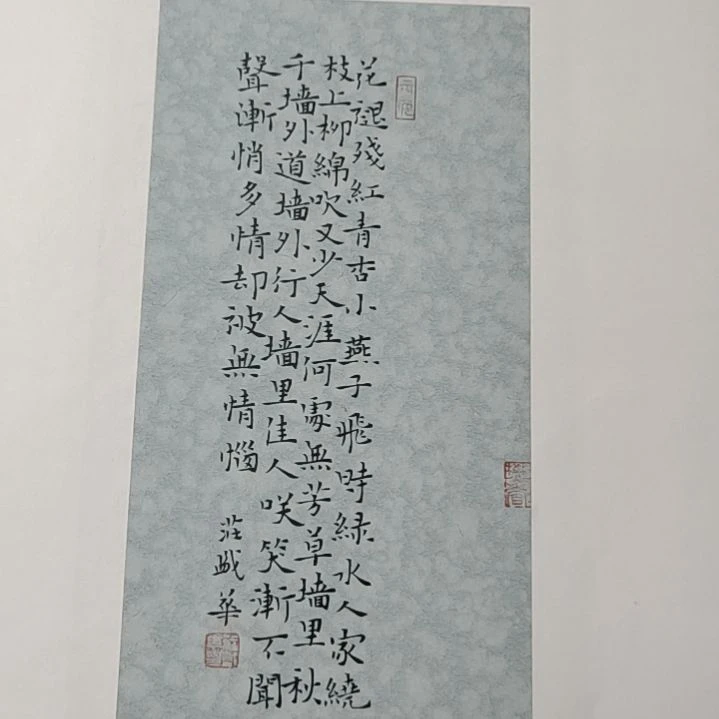 花褪殘紅青杏小燕子飛時緑水人家繞
枝上柳綿吹又少天涯何處無芳草墙里秋
千墙外道墙外行人墙里佳人咲笑漸不聞
聲漸悄多情却被無情惱
莊華